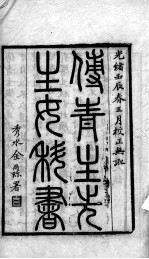 光緒壬辰春三月校正無訛
傅青主先
生女科書
秀水金尔珎署